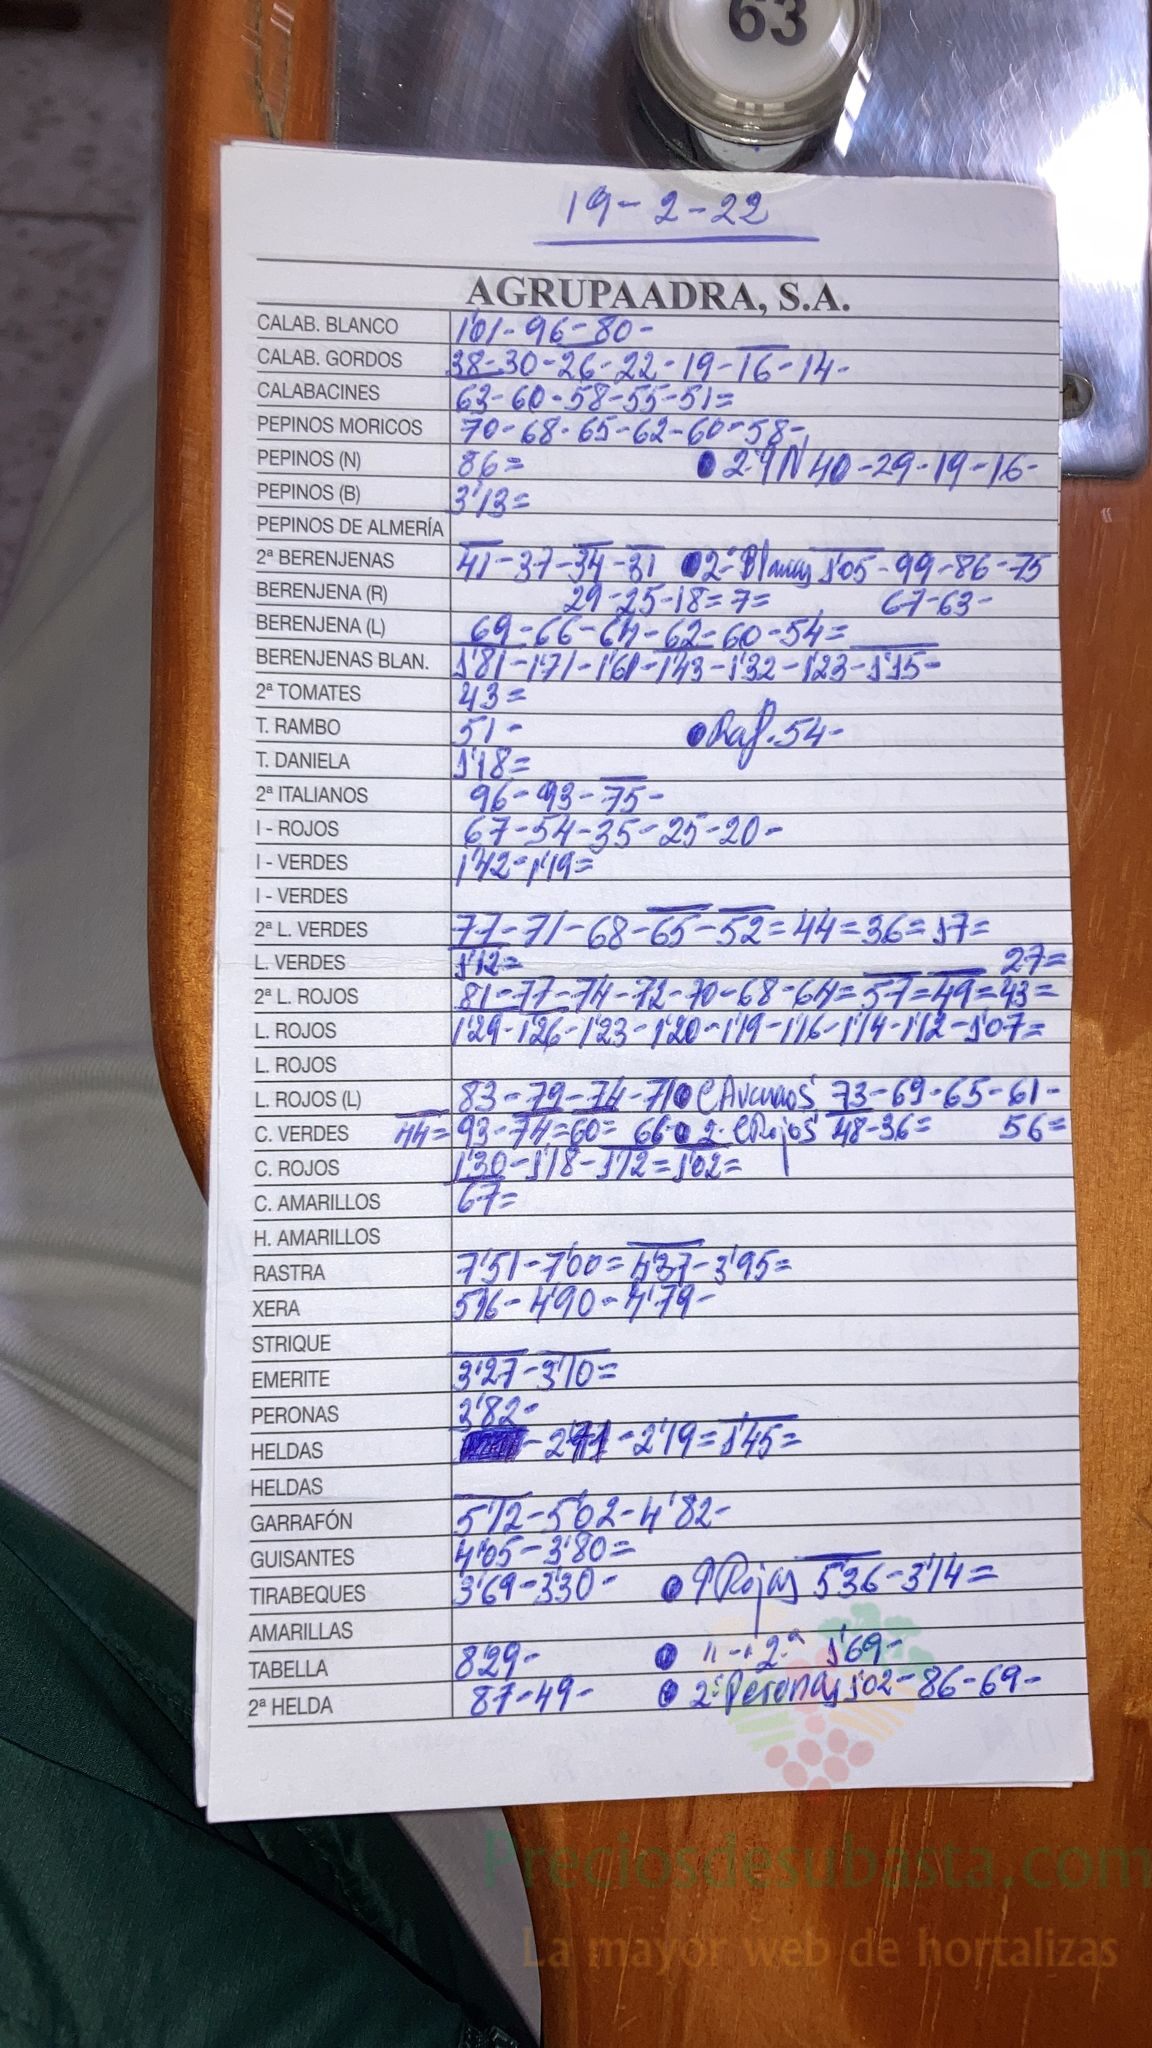 63
19-2-22
AGRUPAADRA, S.A.
CALAB. BLANCO 1'01-96-80-
CALAB. GORDOS 38-30-26-22-19-16-14-
CALABACINES 63-60-58-55-51=
PEPINOS MORICOS 70-68-65-62-60-58-
PEPINOS (N) 86= 2ªPN 40-29-19-16-
PEPINOS (B) 3'13=
PEPINOS DE ALMERÍA
2ª BERENJENAS 41-37-34-31 2ª Blancas 1'05-99-86-75
BERENJENA (R) 29-25-18=7= 67-63-
BERENJENA (L) 69-66-64-62-60-54=
BERENJENAS BLAN. 1'81-1'71-1'61-1'43-1'32-1'23-1'15-
2ª TOMATES 43=
T. RAMBO 51- Raf. 54-
T. DANIELA 1'18=
2ª ITALIANOS 96-93-75-
I - ROJOS 67-54-35-25-20-
I - VERDES 1'42-1'19=
I - VERDES
2ª L. VERDES 77-71-68-65-52=44=36=17=
L. VERDES 1'12= 27=
2ª L. ROJOS 81-77-74-72-70-68-64=57=49=43=
L. ROJOS 1'29-1'26-1'23-1'20-1'19-1'16-1'14-1'12-1'07=
L. ROJOS
L. ROJOS (L) 83-79-74-71 73-69-65-61-
C. VERDES 44= 93-74=60= 66 2ª CRojos 48-36= 56=
C. ROJOS 1'30-1'18-1'12=1'02=
C. AMARILLOS 67=
H. AMARILLOS
RASTRA 7'51-7'00=4'37-3'95=
XERA 5'16-4'90-4'79-
STRIQUE
EMERITE 3'27-3'10=
PERONAS 2'82-
HELDAS -2'71-2'19=1'45=
HELDAS
GARRAFÓN 5'12-5'02-4'82-
GUISANTES 4'05-3'80=
TIRABEQUES 3'69-3'30- PRojas 5'36-3'14=
AMARILLAS
TABELLA 8'29- "-" 2ª 1'69-
2ª HELDA 87-49- 2ª Peronas 1'02-86-69-
Preciosdesubasta.com
La mayor web de hortalizas